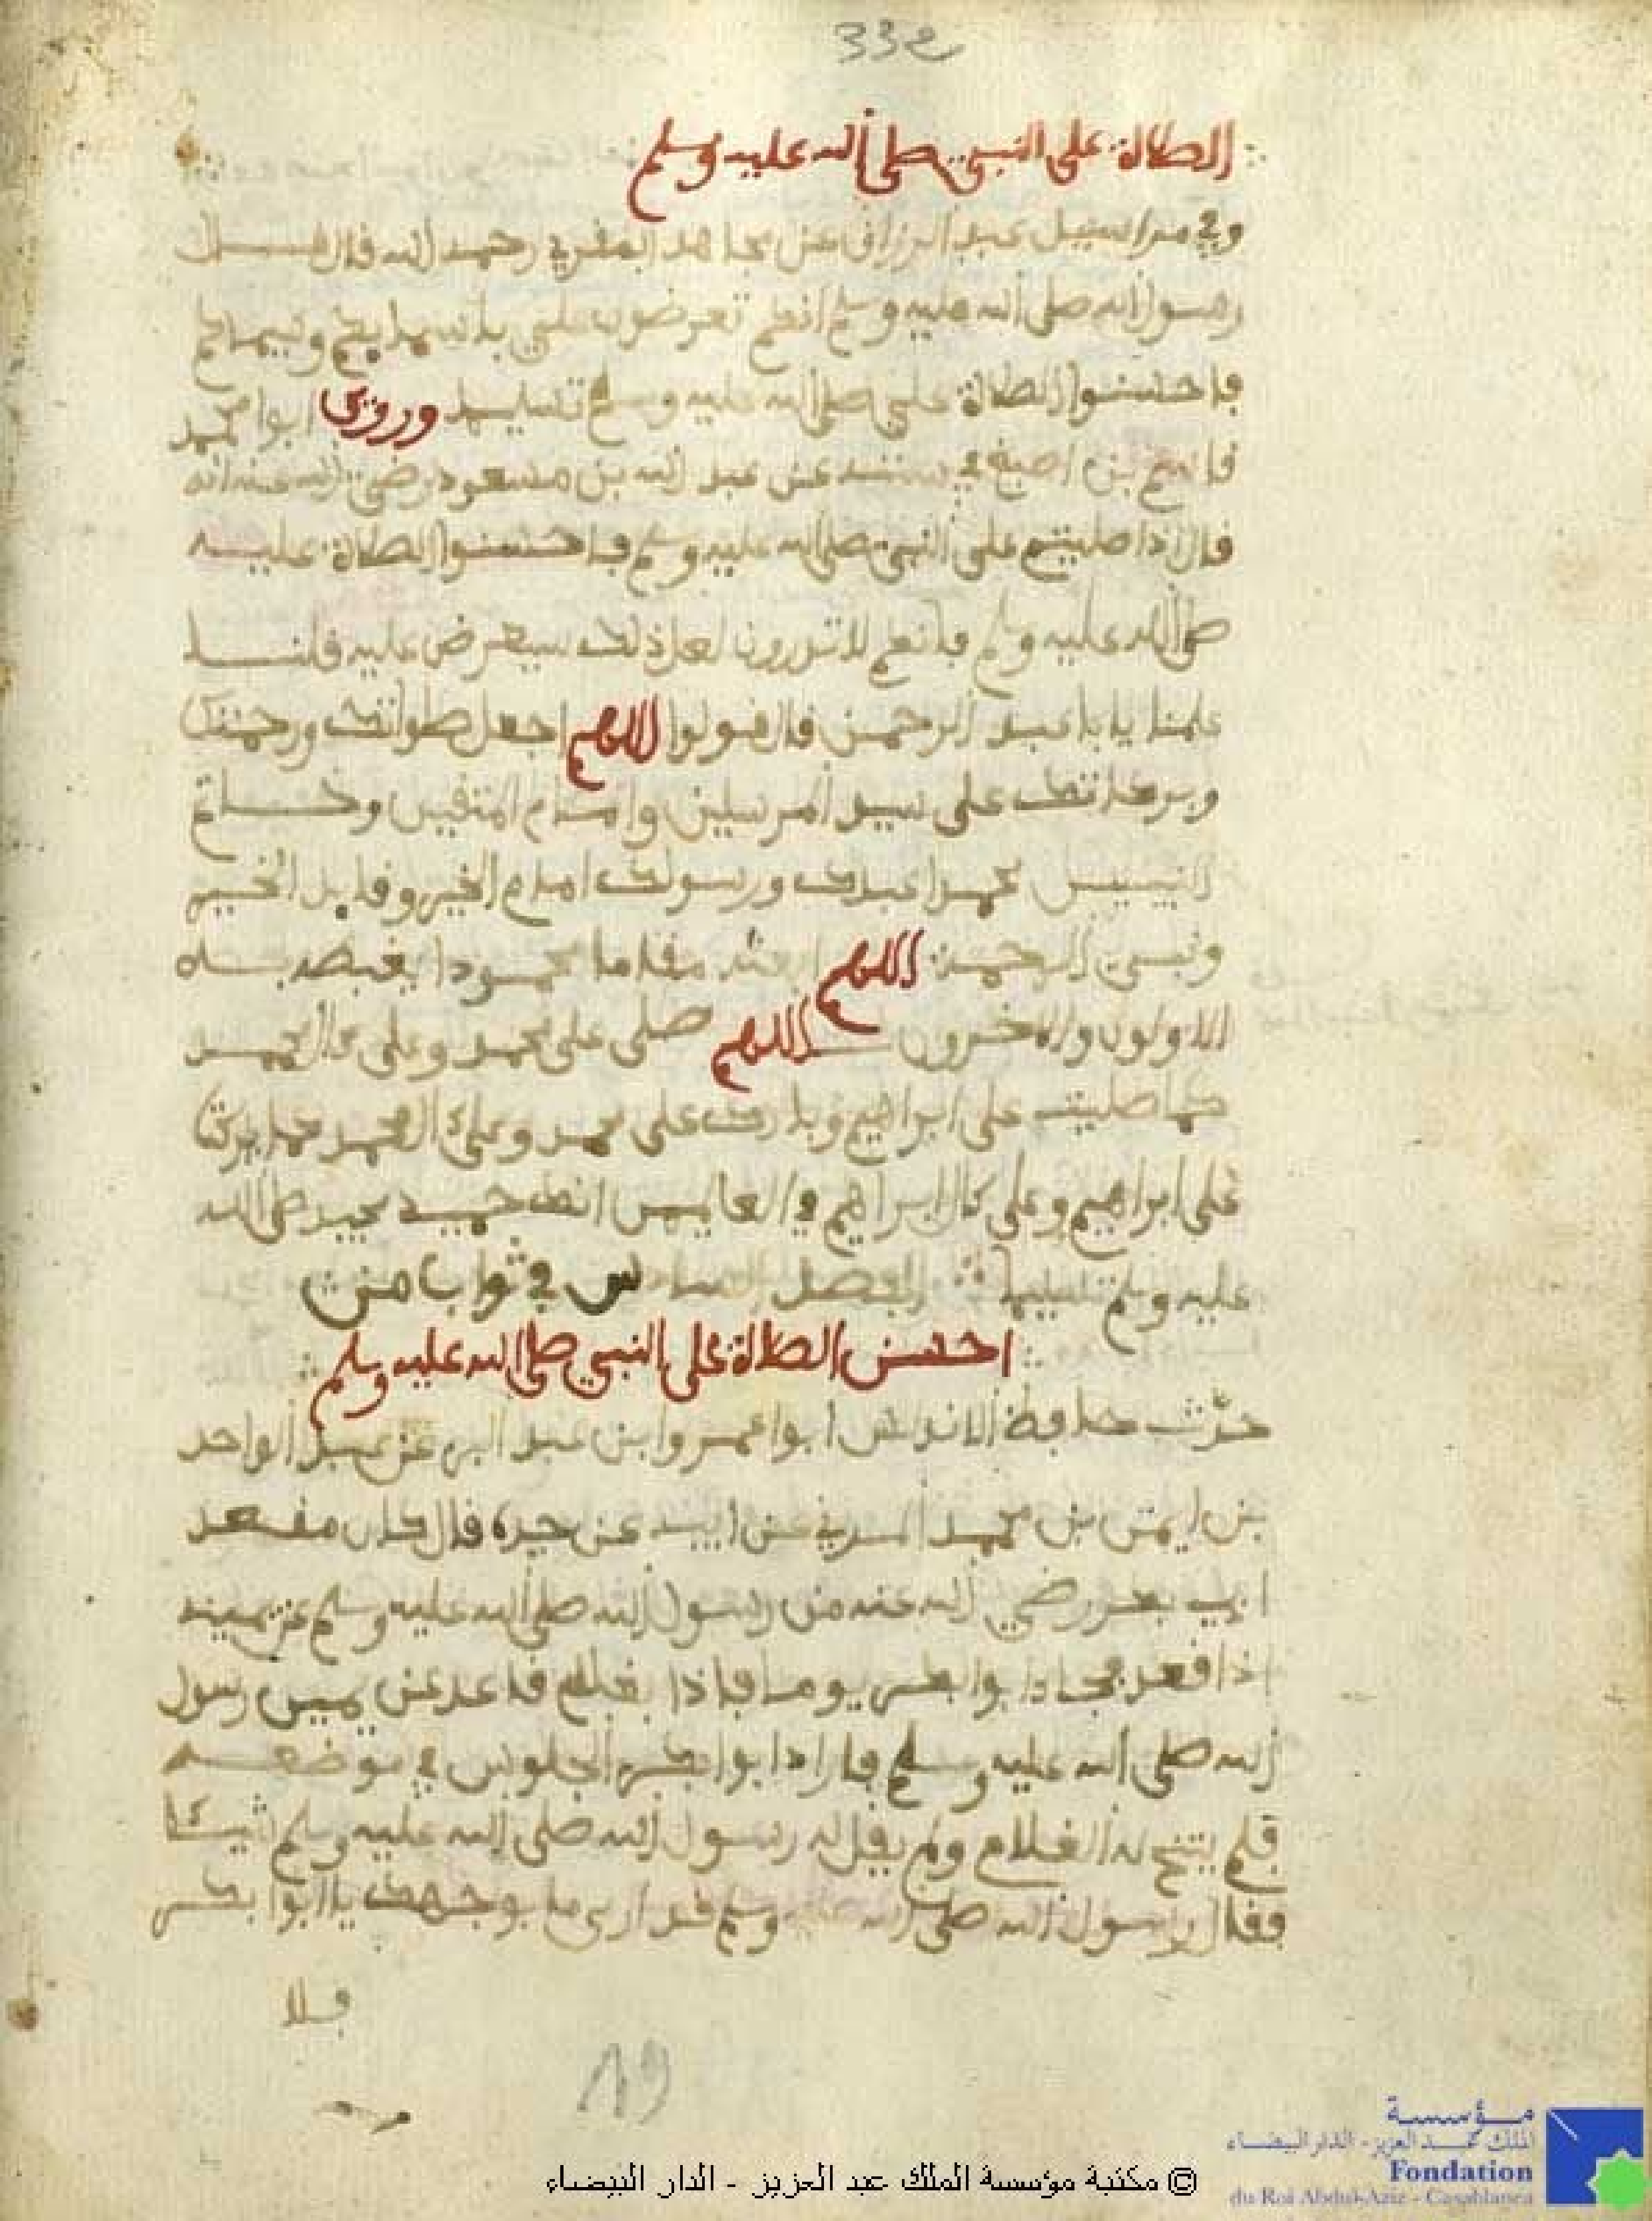 332
الصلاة على النبي صلى الله عليه وسلم
وفي مراسيل عبد الرزاق عن مجاهد المقري رحمه الله قال قال
رسول الله صلى الله عليه وسلم انكم تعرضون علي باسمايكم وسيماكم
فاحسنوا الصلاة علي صلى الله عليه وسلم تسليما وروى ابوا محمد
قاسم بن اصبغ في سنده عن عبد الله بن مسعود رضي الله عنه انه
قال اذا صليتم على النبي صلى الله عليه وسلم فاحسنوا الصلاة عليه
صلى الله عليه وسلم فانكم لا تدرون لعل ذلك سيعرض عليه قلنا
علمنا يا با عبد الرحمن قال قولوا اللهم اجعل صلواتك ورحمتك
وبركاتك على سيد المرسلين وامام المتقين وخاتم
النبيين محمد اعبدك ورسولك امام الخير وقايد الخير
ونبي الرحمة اللهم ابعثه مقاما محمودا يغبطه به
الاولون والاخرون اللهم صلى على محمد وعلى ءال محمد
كما صليت على ابراهيم وبارك على محمد وعلى ال محمد كما بركت
على ابراهيم وعلى ءال ابراهيم في العالمين انك حميد مجيد صلى الله
عليه وسلم تسليما الفصل السادس في ثواب من
احسن الصلاة على النبي صلى الله عليه وسلم
حدث حافظ الاندلس ابوا عمر وابن عبد البر عن عبد الواحد
بن ايمن بن محمد عن ابيه عن جده قال كان مقعد
ابي بكر رضي الله عنه من رسول الله صلى الله عليه وسلم عن يمينه
اذا قعد فجاء ابوا بكر يوما فاذا بغلام قاعد عن يمين رسول
الله صلى الله عليه وسلم فاراد ابوا بكر الجلوس في موضعه
فلم يتنح له الغلام ولم يقل له رسول الله صلى الله عليه وسلم شيئا
فقال رسول الله صلى الله عليه وسلم قد ارى ما بوجهك يا ابوا بكر
فلا
19
مؤسسة
الملك عبد العزيز - الدار البيضاء
Fondation
du Roi Abdul-Aziz - Casablanca
© مكتبة مؤسسة الملك عبد العزيز - الدار البيضاء